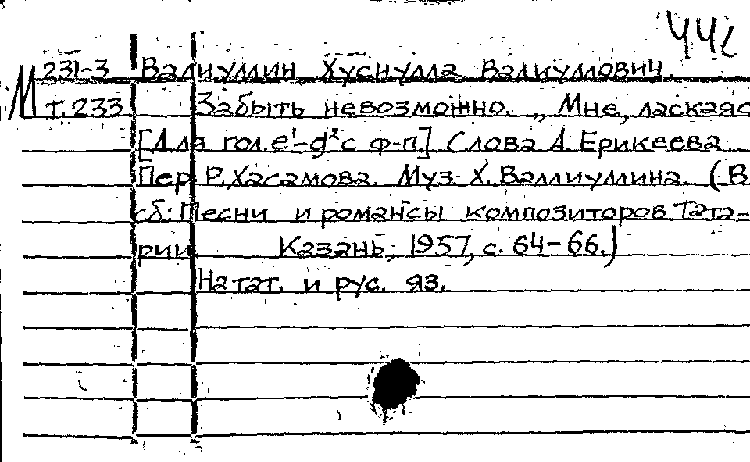 442
М 231-3 Валиуллин Хуснулла Валиуллович.
т. 233 Забыть невозможно. „Мне, ласкаяс
[Для гол. e¹-g²с ф-п] Слова А. Ерикеева
Пер Р. Хасамова. Муз. Х. Валлиуллина. (В
сб: Песни и романсы композиторов Тата-
рии. Казань, 1957, с. 64-66.)
На тат. и рус. яз.